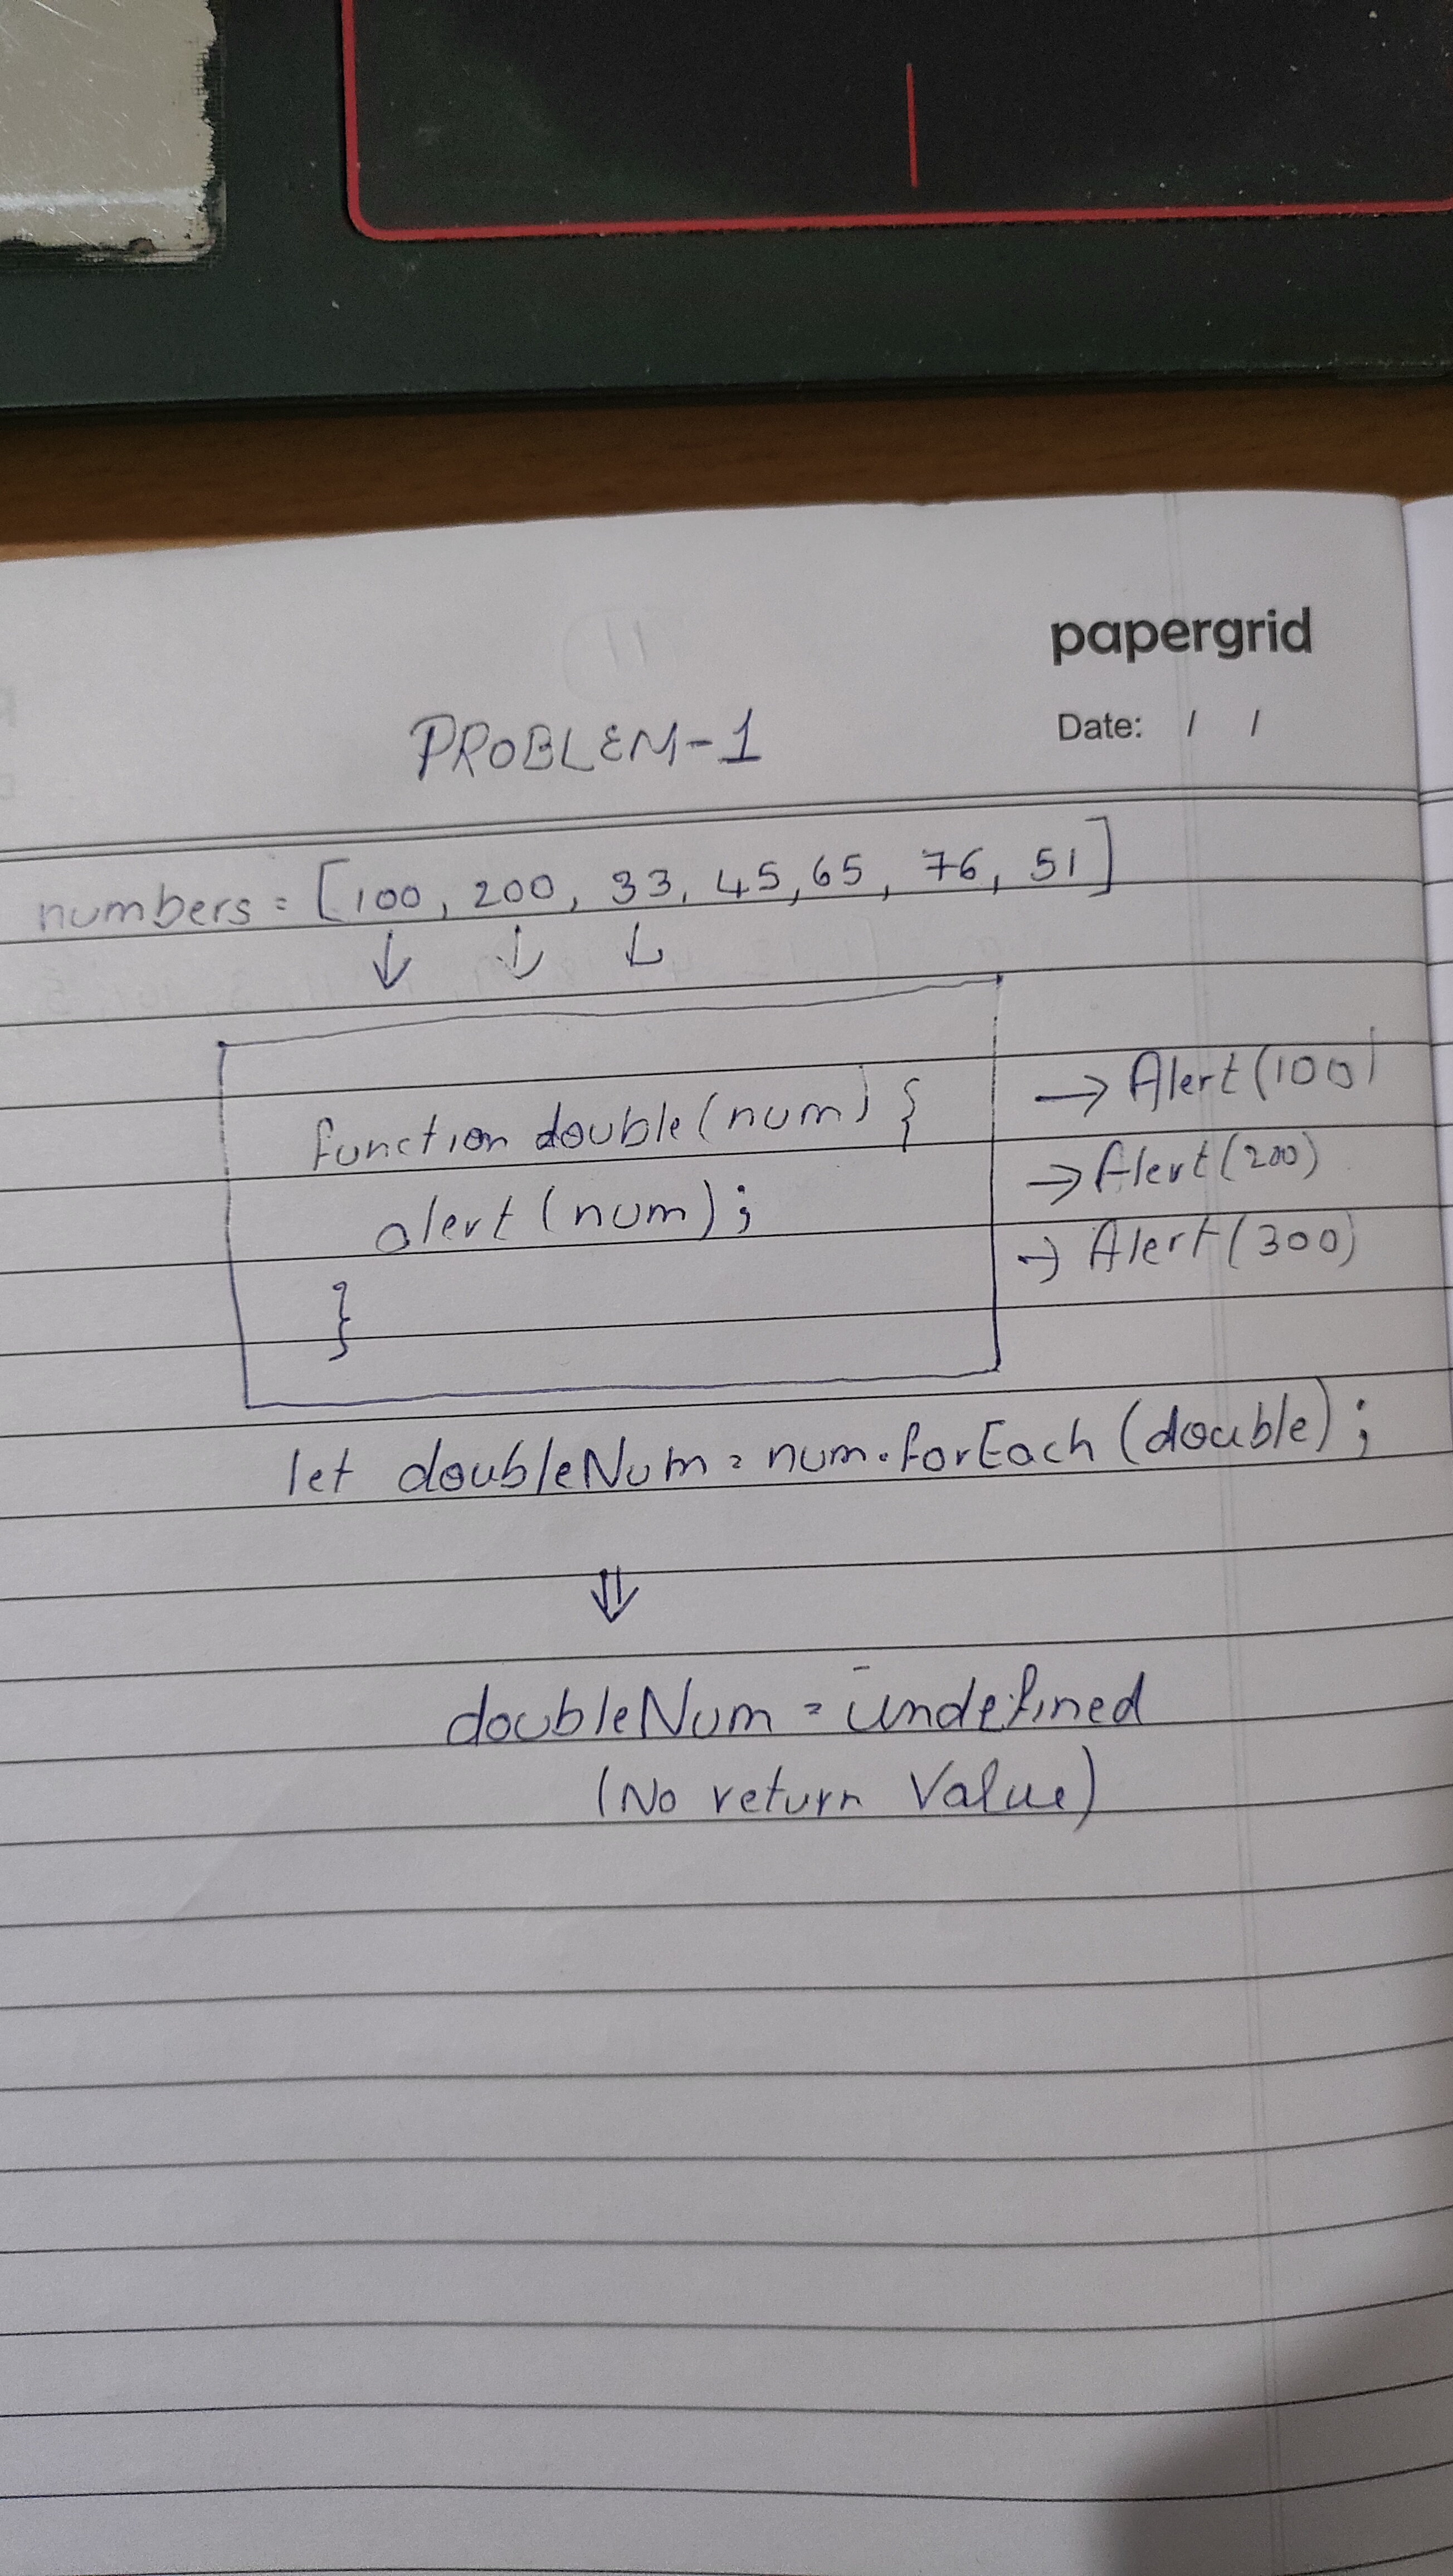 papergrid
Date: / /
PROBLEM-1
numbers = [100, 200, 33, 45, 65, 76, 51]
↓ ↓ ↓
function double(num) {
alert(num);
}
→ Alert(100)
→ Alert(200)
→ Alert(300)
let doubleNum = num.forEach(double);
⇓
doubleNum = undefined
(No return Value)